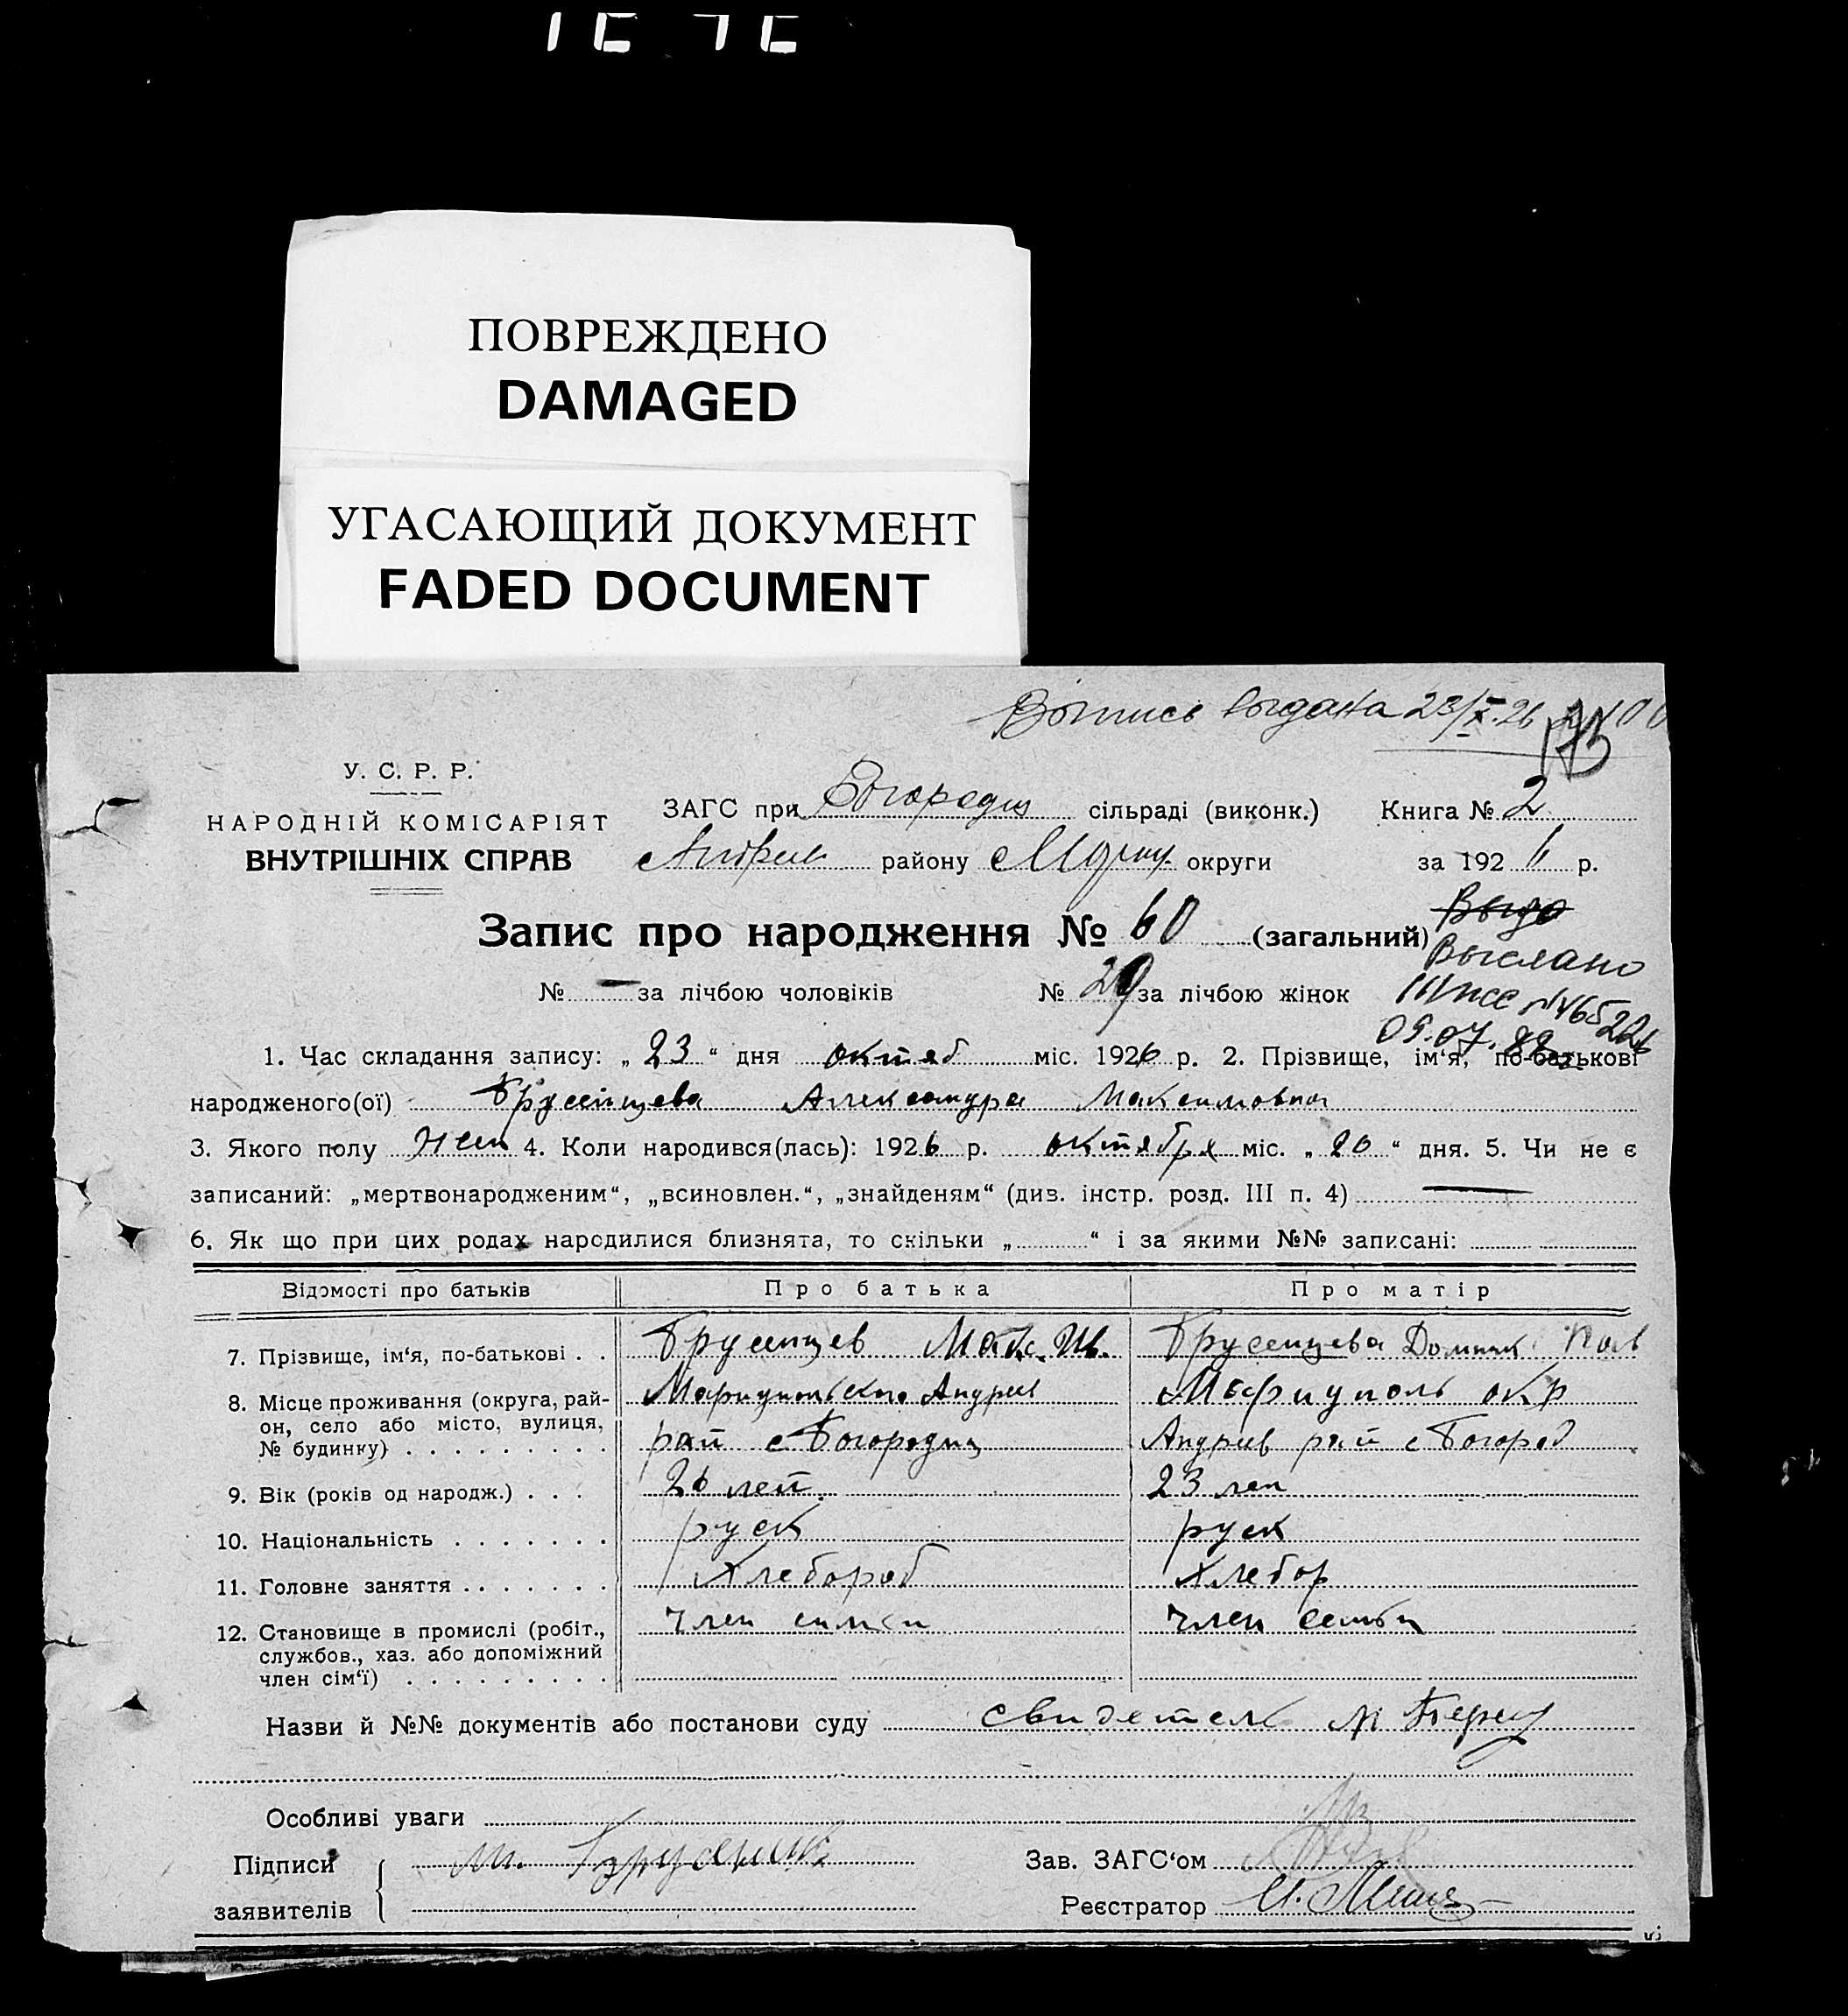 ПОВРЕЖДЕНО
DAMAGED
УГАСАЮЩИЙ ДОКУМЕНТ
FADED DOCUMENT
Выпись выдана 23/X-26
173
У. С. Р. Р.
НАРОДНІЙ КОМІСАРІЯТ
ВНУТРІШНІХ СПРАВ
ЗАГС при Богородиц сільраді (виконк.) Книга № 2
району округи за 1926 р.
Запис про народження № 60 (загальний)
Выслано
№ — за лічбою чоловіків № 29 за лічбою жінок
05.07.
1. Час складання запису: „ 23 “ дня октяб міс. 1926 р. 2. Прізвище, ім‘я, по-батькові
народженого(ої) Брусенцева Александра Максимовна
3. Якого полу жен 4. Коли народився(лась): 1926 р. октября міс. „ 20 “ дня. 5. Чи не є
записаний: „мертвонародженим“, „всиновлен.“, „знайденям“ (див. інстр. розд. III п. 4) —
6. Як що при цих родах народилися близнята, то скільки „ “ і за якими №№ записані:
Відомості про батьків Про батька Про матір
7. Прізвище, ім‘я, по-батькові . . Брусенцев Макс. Ив. Брусенцева Домник Пав
8. Місце проживання (округа, рай-он, село або місто, вулиця, № будинку) Мариупольского Андрее Мариуполь окр
рай с Богородиц Андреев рай с Богород
9. Вік (років од народж.) . . . 26 лет. 23 лет
10. Національність руск руск
11. Головне заняття Хлебороб Хлебор
12. Становище в промислі (робіт., службов., хаз. або допоміжний член сім‘ї) член семьи член семьи
Назви й №№ документів або постанови суду свидетель
Особливі уваги
Підписи Зав. ЗАГС‘ом
заявителів Реєстратор